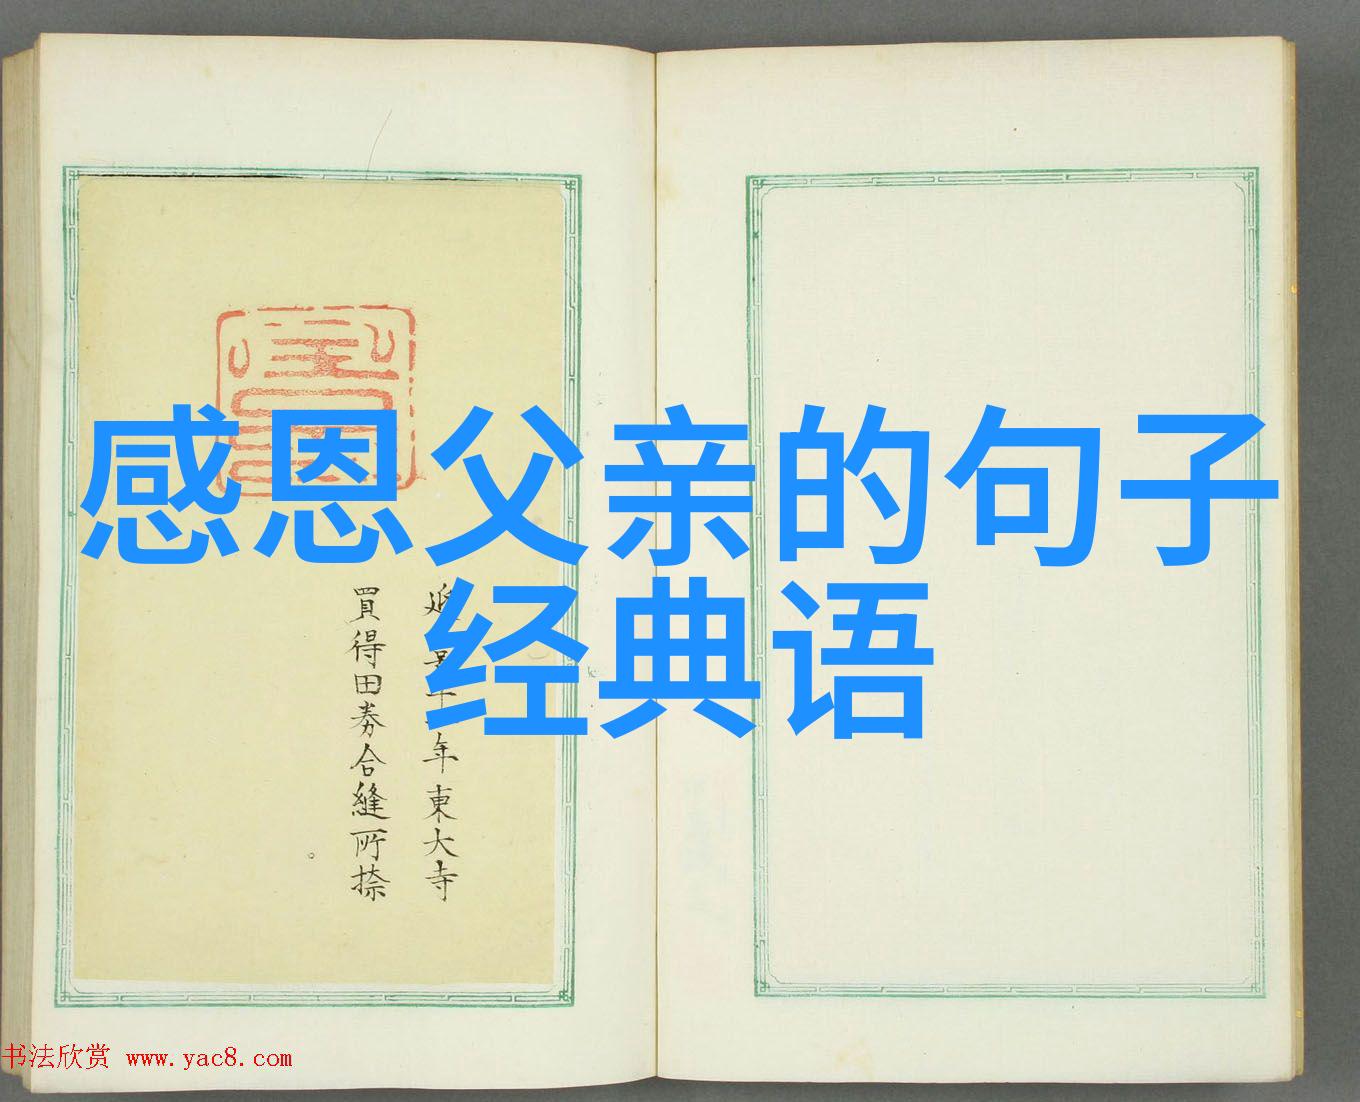 感恩父亲的句子
经典语
年東大寺
買得田券合縫所捺
书法欣赏 www.yac8.com